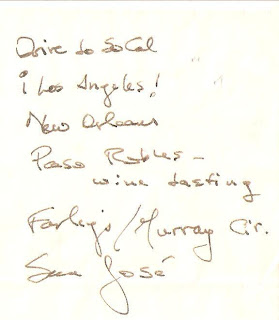 Drive to SoCal
¡Los Angeles!
New Orleans
Paso Robles -
wine tasting
Farley's/Murray Cir.
San José